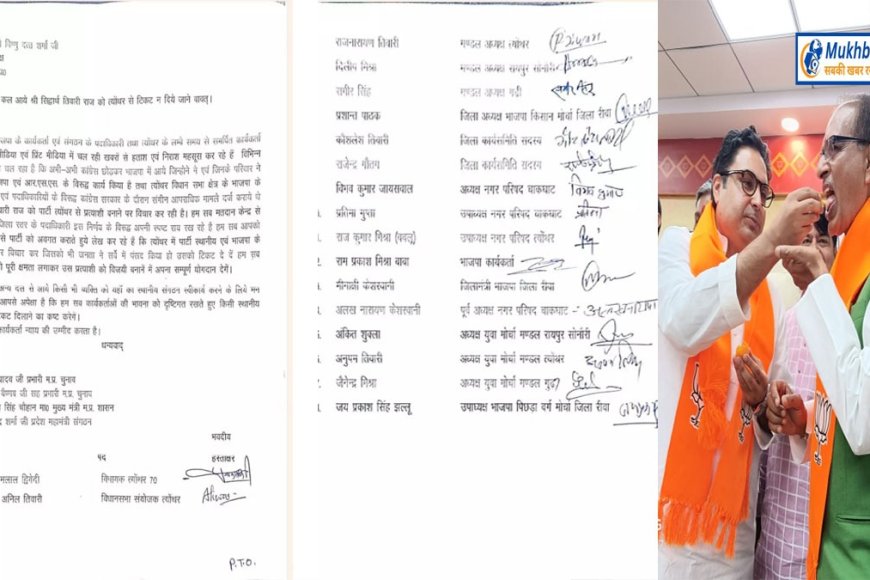 विष्णु दत्त शर्मा जी
कल आये श्री सिद्धार्थ तिवारी राज को त्योंथर से टिकट न दिये जाने बावत्।
के कार्यकर्ता एवं संगठन के पदाधिकारी तथा त्योंथर के लम्बे समय से समर्पित कार्यकर्ता
मीडिया एवं प्रिंट मीडिया में चल रही खबरों से हताश एवं निराश महसूस कर रहे हैं विभिन्न
चल रहा है कि अभी-अभी कांग्रेस छोड़कर भाजपा में आये जिन्होने व एवं जिनके परिवार ने
एवं आर.एस.एस. के विरूद्ध कार्य किया है तथा त्योंथर विधान सभा क्षेत्र के भाजपा के
एवं पदाधिकारियों के विरूद्ध कांग्रेस सरकार के दौरान संगीन आपराधिक मामले दर्ज कराये थे
राज को पार्टी त्योंथर से प्रत्याशी बनाने पर विचार कर रही है। हम सब मतदान केन्द्र से
जिला स्तर के पदाधिकारी इस निर्णय के विरूद्ध अपनी स्पष्ट राय रख रहे हैं हम सब आपको
से पार्टी को अवगत कराते हुये लेख कर रहे है कि त्योंथर में पार्टी स्थानीय एवं भाजपा के
विचार कर जिसको भी जनता ने सर्वे में पंसद किया हो उसको टिकट दे दें हम सब
पूरी क्षमता लगाकर उस प्रत्याशी को विजयी बनाने में अपना सम्पूर्ण योगदान देगें।
अन्य दल से आये किसी भी व्यक्ति को यहाँ का स्थानीय संगठन स्वीकार्य करने के लिये मन
आपसे अपेक्षा है कि हम सब कार्यकर्ताओं की भावना को दृष्टिगत रखते हुए किसी स्थानीय
टिकट दिलाने का कष्ट करेगें।
कार्यकर्ता न्याय की उम्मीर करता है।
धन्यवाद्
यादव जी प्रभारी म.प्र. चुनाव
वैष्णव जी सह प्रभारी म.प्र. चुनाव
सिंह चौहान मा0 मुख्य मंत्री म.प्र. शासन
शर्मा जी प्रदेश महामंत्री संगठन
भवदीय
पद हस्ताक्षर
द्विवेदी विधायक त्योंथर 70
अनिल तिवारी विधानसभा संयोजक त्योंथर
P.T.O.
राजनारायण तिवारी मण्डल अध्यक्ष त्योंथर
दिलीप मिश्रा मण्डल अध्यक्ष रायपुर सोनौरी
समीर सिंह मण्डल अध्यक्ष गढ़ी
प्रशान्त पाठक जिला अध्यक्ष भाजपा किसान मोर्चा जिला रीवा
कौशलेश तिवारी जिला कार्यसमिति सदस्य
राजेन्द्र गौतम जिला कार्यसमिति सदस्य
विभव कुमार जायसवाल अध्यक्ष नगर परिषद चाकघाट
प्रतिमा गुप्ता उपाध्यक्ष नगर परिषद चाकघाट
राज कुमार मिश्रा (बबलू) उपाध्यक्ष नगर परिषद त्योंथर
राम प्रकाश मिश्रा बाबा भाजपा कार्यकर्ता
मीनाक्षी केशरवानी जिलामंत्री भाजपा जिला रीवा
अलख नारायण केशरवानी पूर्व अध्यक्ष नगर परिषद चाकघाट
अंकित शुक्ला अध्यक्ष युवा मोर्चा मण्डल रायपुर सोनौरी
अनुपम तिवारी अध्यक्ष युवा मोर्चा मण्डल त्योंथर
जैनेन्द्र मिश्रा अध्यक्ष युवा मोर्चा मण्डल गढ़ी
जय प्रकाश सिंह झल्लू उपाध्यक्ष भाजपा पिछड़ा वर्ग मोर्चा जिला रीवा
Mukhb
सबकी खबर